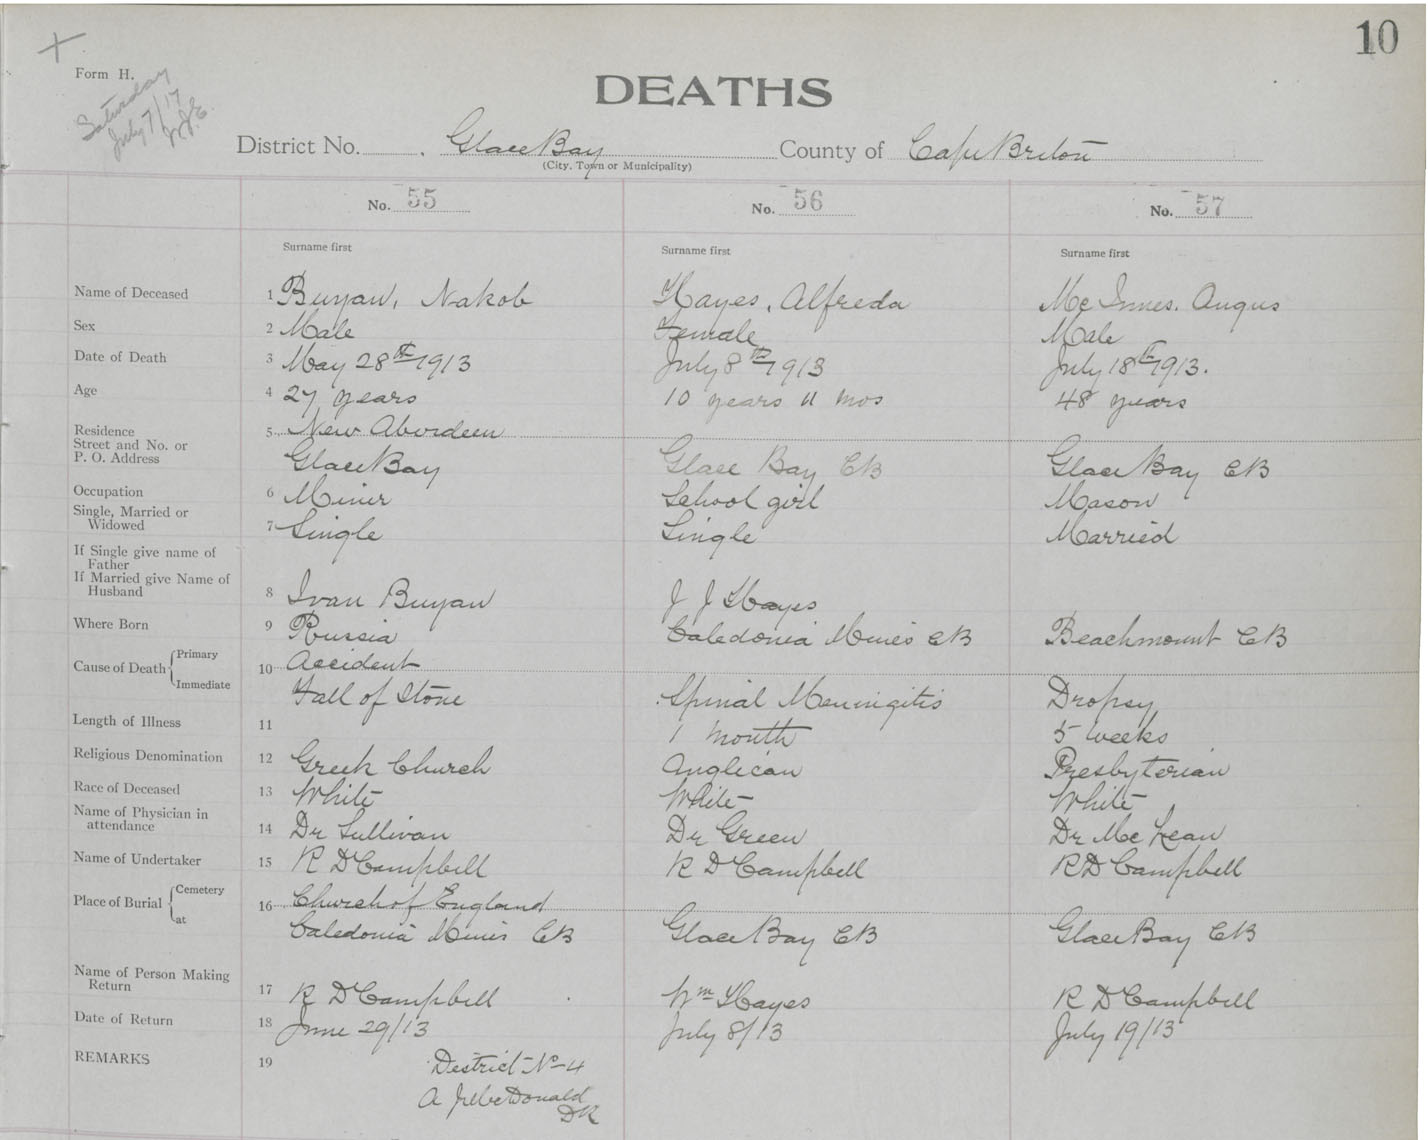 10
Form H.
Saturday
July 7/17
DEATHS
District No. Glace Bay County of Cape Breton
(City, Town or Municipality)
No. 55 No. 56 No. 57
Surname first Surname first Surname first
Name of Deceased 1 Buyan, Nakob Hayes, Alfreda Mc Innes. Angus
Sex 2 Male Female Male
Date of Death 3 May 28th 1913 July 8th 1913 July 18th 1913.
Age 4 27 years 10 years 11 mos 48 years
Residence 5 New Aberdeen
Street and No. or
P. O. Address Glace Bay Glace Bay CB Glace Bay CB
Occupation 6 Miner School girl Mason
Single, Married or
Widowed 7 Single Single Married
If Single give name of
Father
If Married give Name of
Husband 8 Ivan Buyan J J Hayes
Where Born 9 Russia Caledonia Mines CB Beachmount CB
Cause of Death Primary 10 Accident
Immediate Fall of Stone Spinal Meningitis Dropsy
Length of Illness 11 1 month 5 weeks
Religious Denomination 12 Greek Church Anglican Presbyterian
Race of Deceased 13 White White White
Name of Physician in
attendance 14 Dr Sullivan Dr Green Dr Mc Lean
Name of Undertaker 15 R D Campbell R D Campbell R D Campbell
Place of Burial Cemetery 16 Church of England
at Caledonia Mines CB Glace Bay CB Glace Bay CB
Name of Person Making
Return 17 R D Campbell Wm Hayes R D Campbell
Date of Return 18 June 29/13 July 8/13 July 19/13
REMARKS 19 District No 4
A J McDonald
DR